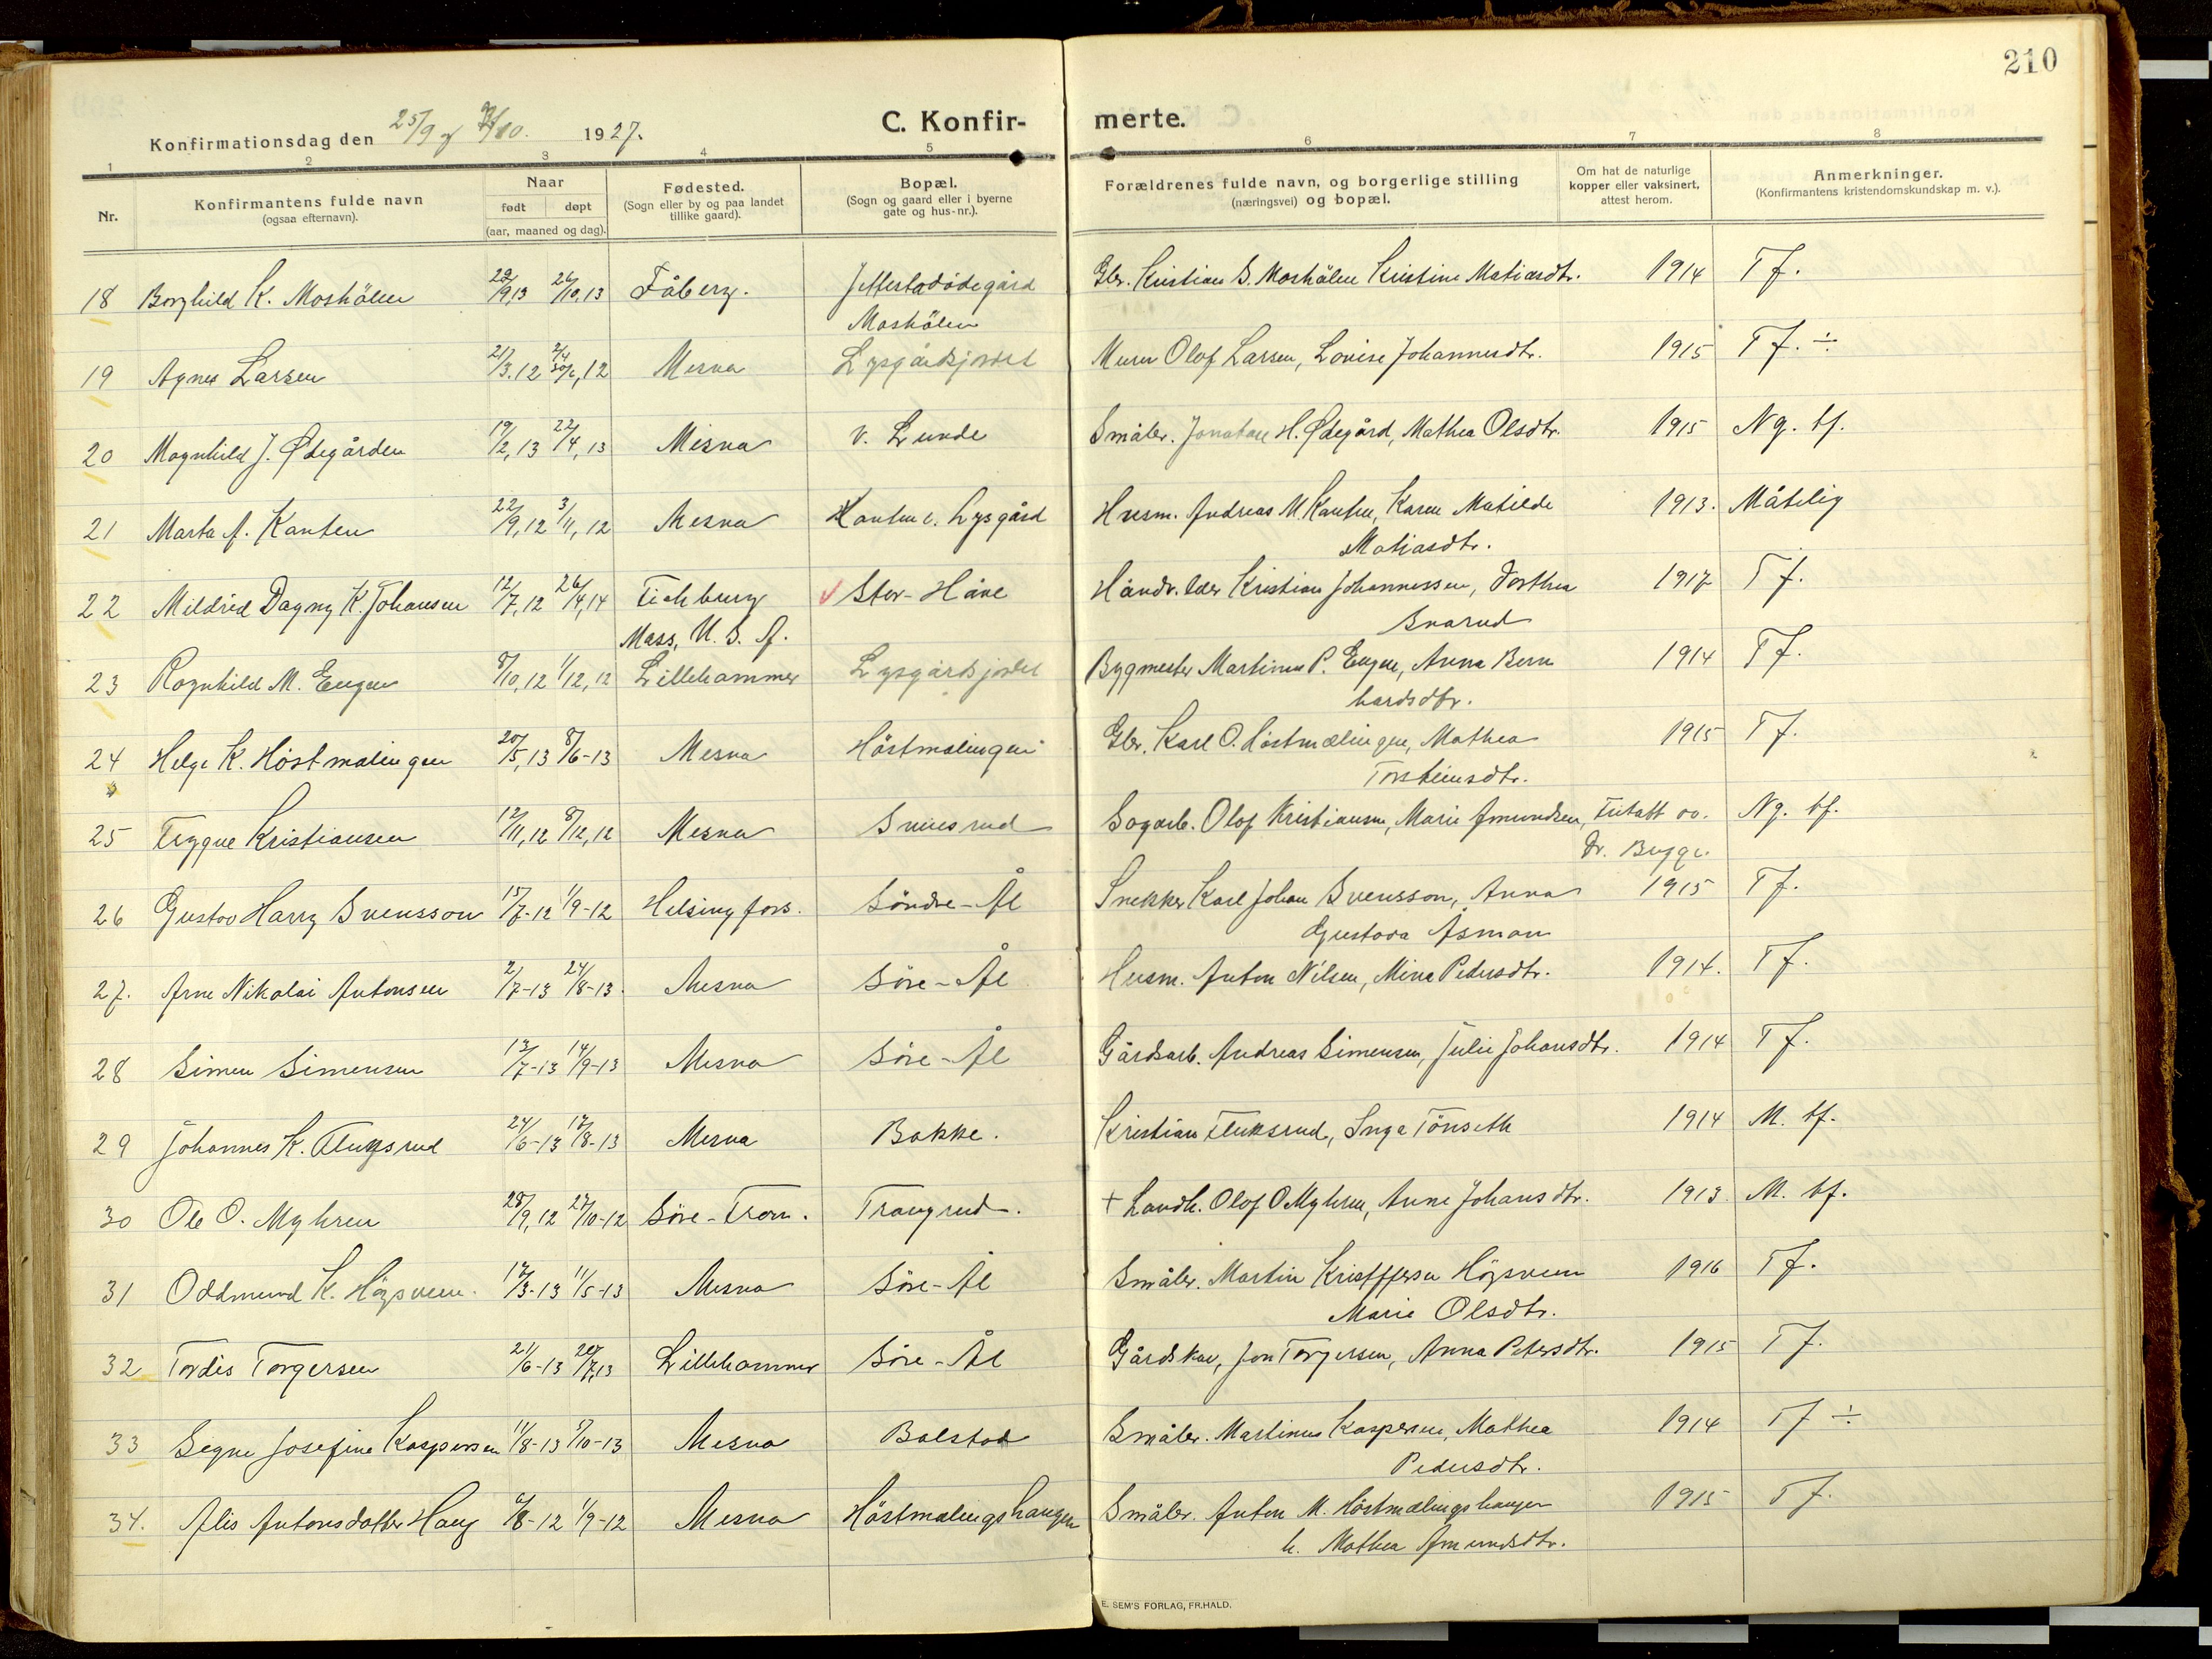 210
Konfirmationsdag den 25/9 1927.
C. Konfir-
merte.
1 2 3 4 5 6 7 8
Nr.
Konfirmantens fulde navn
(ogsaa efternavn).
Naar
født døpt
(aar, maaned og dag).
Fødested.
(Sogn eller by og paa landet
tillike gaard).
Bopæl.
(Sogn og gaard eller i byerne
gate og hus-nr.).
Forældrenes fulde navn, og borgerlige stilling
(næringsvei) og bopæl.
Om hat de naturlige
kopper eller vaksinert,
attest herom.
Anmerkninger.
(Konfirmantens kristendomskundskap m. v.).
18 Borghild K. Moshölen 29/9,13 26/10,13 Fåberg. Jettestadödegård Gbr. Kristian S. Moshölen Kristine Matiasdtr. 1914 T f.
Moshölen
19 Agnes Larsen 21/3.12 Mesna Lysgårdsjordet Murer Olof Larsen, Lovise Johannesdtr. 1915 T f. ÷
20 Magnhild J. Ødegården 19/2,13 22/4,13 Mesna v. Lunde Småbr. Jonatan H. Ødegård, Mathea Olsdtr. 1915 Ng. tf.
21 Marta A. Kanten 22/9,12 3/11,12 Mesna Kanten v. Lysgård Husm. Andreas M. Kanten, Karen Matilde 1913. Måtelig
Matiasdtr.
22 Mildred Dagny K. Johansen 12/7,12 26/4,14 Fichburg Stor-Håve Håndv. Kristian Johannessen, Dorthea 1917 T f.
Mass, U. S. A. Svarud
23 Ragnhild M. Engen 8/10,12 1/12,12 Lillehammer Lysgårdsjordet Bygmester Martinus P. Engen, Anna Bern 1914 T f.
hardsdtr.
24 Helge K. Höstmælingen 20/5,13 8/6-13 Mesna Höstmælingen Gbr. Karl O. Höstmælingen, Mathea 1915 T f.
Torsteinsdtr.
25 Trygve Kristiansen 12/11,12 8/12,12 Mesna Sveesrud Sagarb. Olof Kristiansen, Marie Amundsen, Fritatt av. Ng. tf.
Dr. Bugge.
26 Gustav Harry Svensson 15/7-12 1/9-12 Helsingfors. Söndre-Ål Snekker Karl Johan Svensson, Anna 1915 T f.
Gustava Åsman
27. Arne Nikolai Antonsen 2/7-13 24/8-13. Mesna Söre-Ål Husm. Anton Nilsen, Mina Pedersdtr. 1914. T f.
28 Simen Simensen 13/7-13 14/9-13 Mesna Söre-Ål Gårdsarb. Andreas Simensen, Julie Johansdtr. 1914 T f.
29 Johannes K. Fluksrud 24/6-13 17/8-13 Mesna Bakke. Kristian Fluksrud, Inga Tönseth 1914 M. tf.
30 Ole O. Myhren 28/9,12 27/10-12 Söre-Fron. Trangrud. + Landh. Olof O Myhren, Anne Johansdtr. 1913. M. tf.
31 Oddmund K. Högsveen. 17/3-13 11/5-13 Mesna Söre-Ål Småbr. Martin Kristoffersen Högsveen 1916 T f.
Marie Olsdtr.
32 Tordis Torgersen 21/6-13 20/7,13 Lillehammer Söre-Ål Gårdskar, Jon Torgersen, Anna Petersdtr. 1915 T f.
33 Signe Josefine Kaspersen 11/8-13 5/10-13 Mesna Balstad Småbr. Martinus Kaspersen, Mathea 1914 T f ÷
Pedersdtr.
34. Alis Antonsdatter Haug 6/8-12 1/9-12 Mesna Höstmælingshaugen Småbr. Anton M. Höstmælingshaugen 1915 T f.
h. Mathea Amundsdtr.
E. SEM'S FORLAG, FR.HALD.